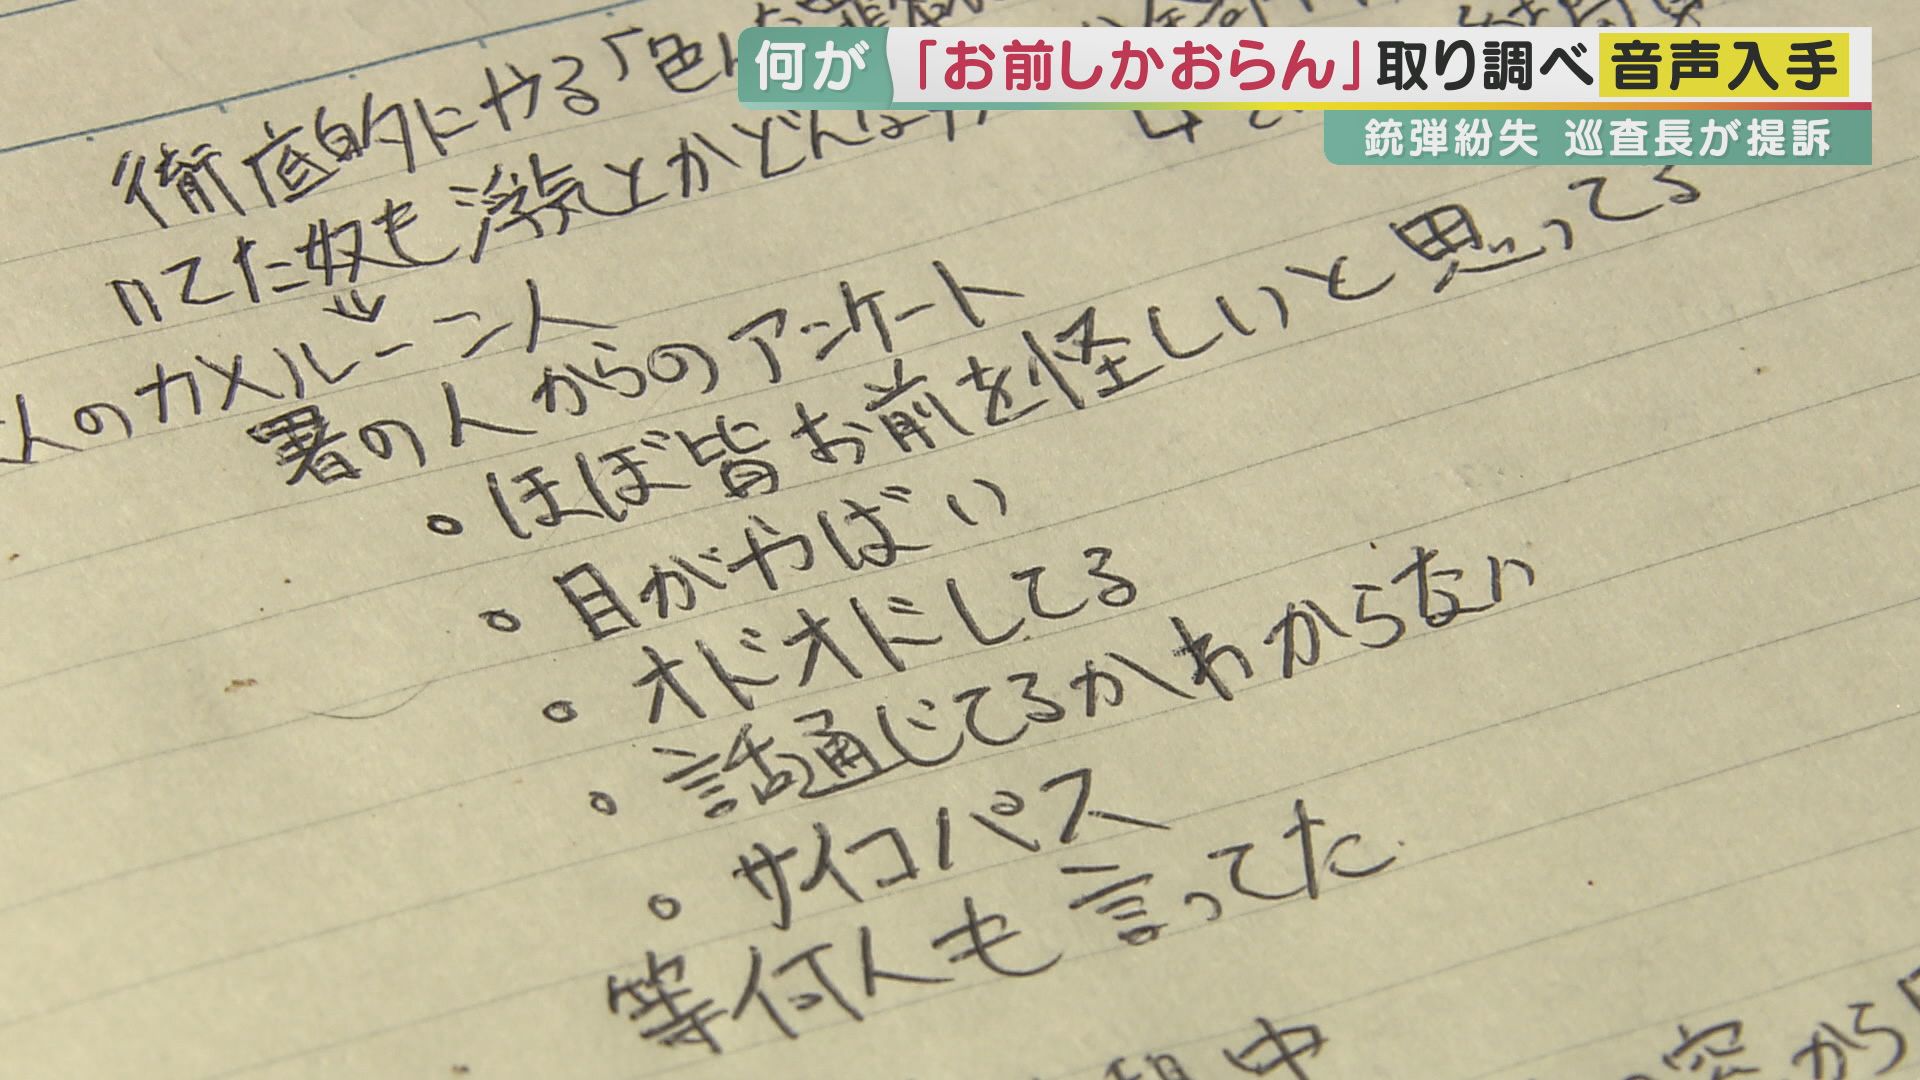 何が
「お前しかおらん」取り調べ 音声入手
銃弾紛失 巡査長が提訴
徹底的にやる「色
てた奴も浮気とかどんな
人のカメルーン人
署の人からのアンケート
・ほぼ皆お前を怪しいと思ってる
・目がやばい
・オドオドしてる
・話通じてるかわからない
・サイコパス
等何人も言ってた
中
窓から